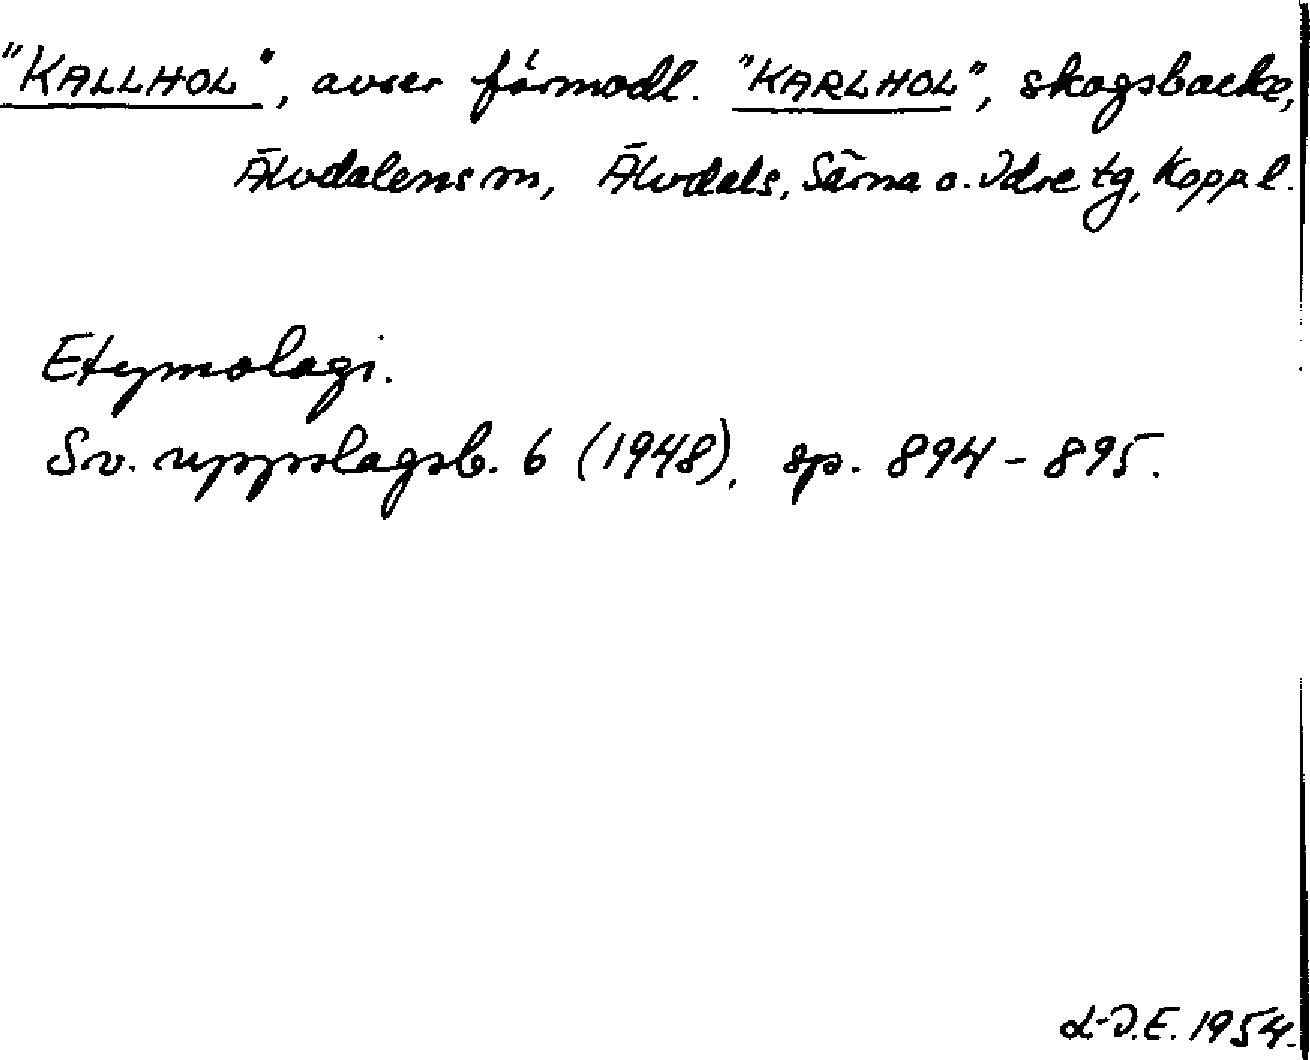 "KALLHOL", avser förmodl. "KARLHOL", skogsbacke,
Älvdalens sn, Älvdals, Särna o. Idre tg, Kopp. l.
Etymologi.
Sv. uppslagsb. 6 (1948), sp. 894-895.
L-I.E. 1954.